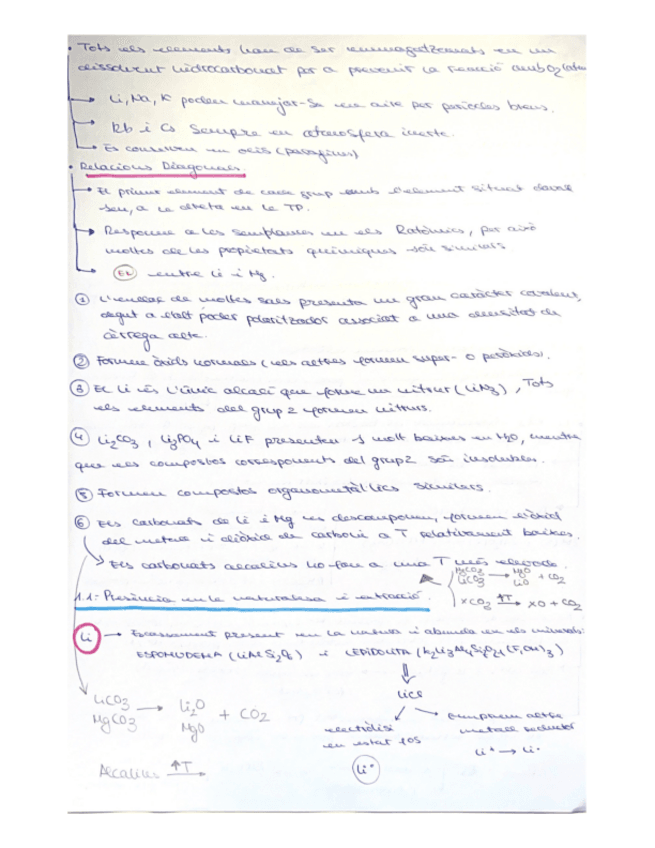 • Tots els elements han de ser emmagatzemats en un
dissolvent hidrocarbonat per a prevenir la reacció amb O2
→ Li, Na, K poden manejar-se en aire per períodes breus.
→ Rb i Cs sempre en atmosfera inerte.
→ Es conserven en olis (parafines)
• Relacions Diagonals
→ El primer element de cada grup amb l'element situat davall
seu, a la dreta en la TP.
→ Respone a les semblances en els Ratòmics, per això
moltes de les propietats químiques són similars
→ Ex entre Li i Mg.
① L'enllaç de moltes sals presenta un gran caràcter covalent,
degut a l'alt poder polaritzador associat a una densitat de
càrrega alta.
② Formen òxids normals (els altres formen super- o peròxids).
③ El Li és l'únic alcalí que forma un nitrur (LiN3), Tots
els elements del grup 2 formen nitrurs.
④ Li2CO3, Li3PO4 i LiF presenten s molt baixes en H2O, mentre
que els compostos corresponents del grup 2 són insolubles.
⑤ Formen compostos organometàl·lics similars.
⑥ Els carbonats de Li i Mg es descomponen, formen l'òxid
del metall i diòxid de carboni a T relativament baixes.
→ Els carbonats alcalins ho fan a una T més elevada.
MgCO3 → MgO
LiCO3 LiO + CO2
XCO3 ↑T→ XO + CO2
1.1.- Presència en la naturalesa i extracció
Li → Escassament present en la natura i abunda en els minerals:
ESPOMUDEMA (LiAlSi2O6) i LEPIDOLITA
LiCl
electròlisi
en estat fos
Li°
emprem altre
metall reductor
Li+ → Li°
LiCO3 → Li2O
MgCO3 MgO + CO2
Alcalins ↑T→